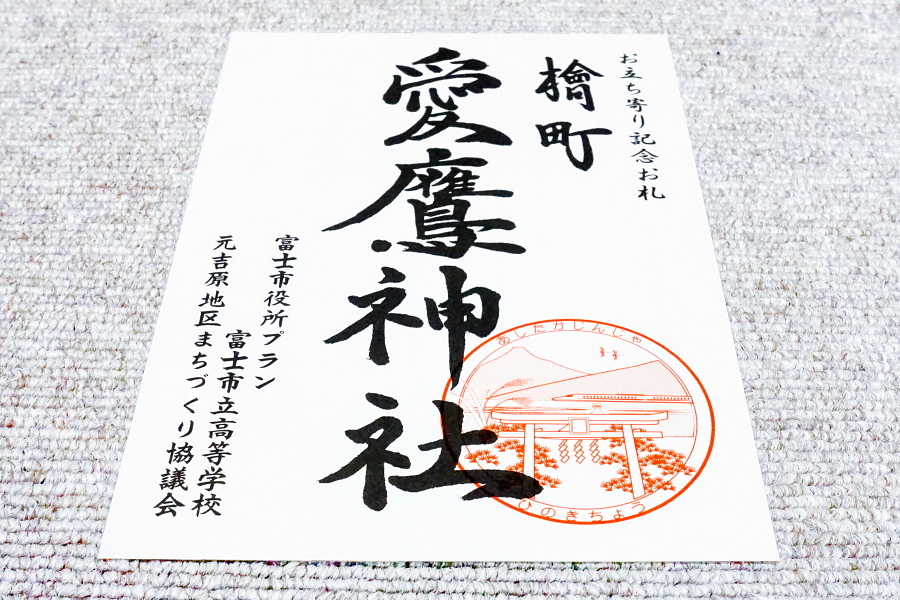 お立ち寄り記念お札
檜町
愛鷹神社
富士市役所プラン
富士市立高等学校
元吉原地区まちづくり協議会
あしたかじんじゃ
ひのきちょう